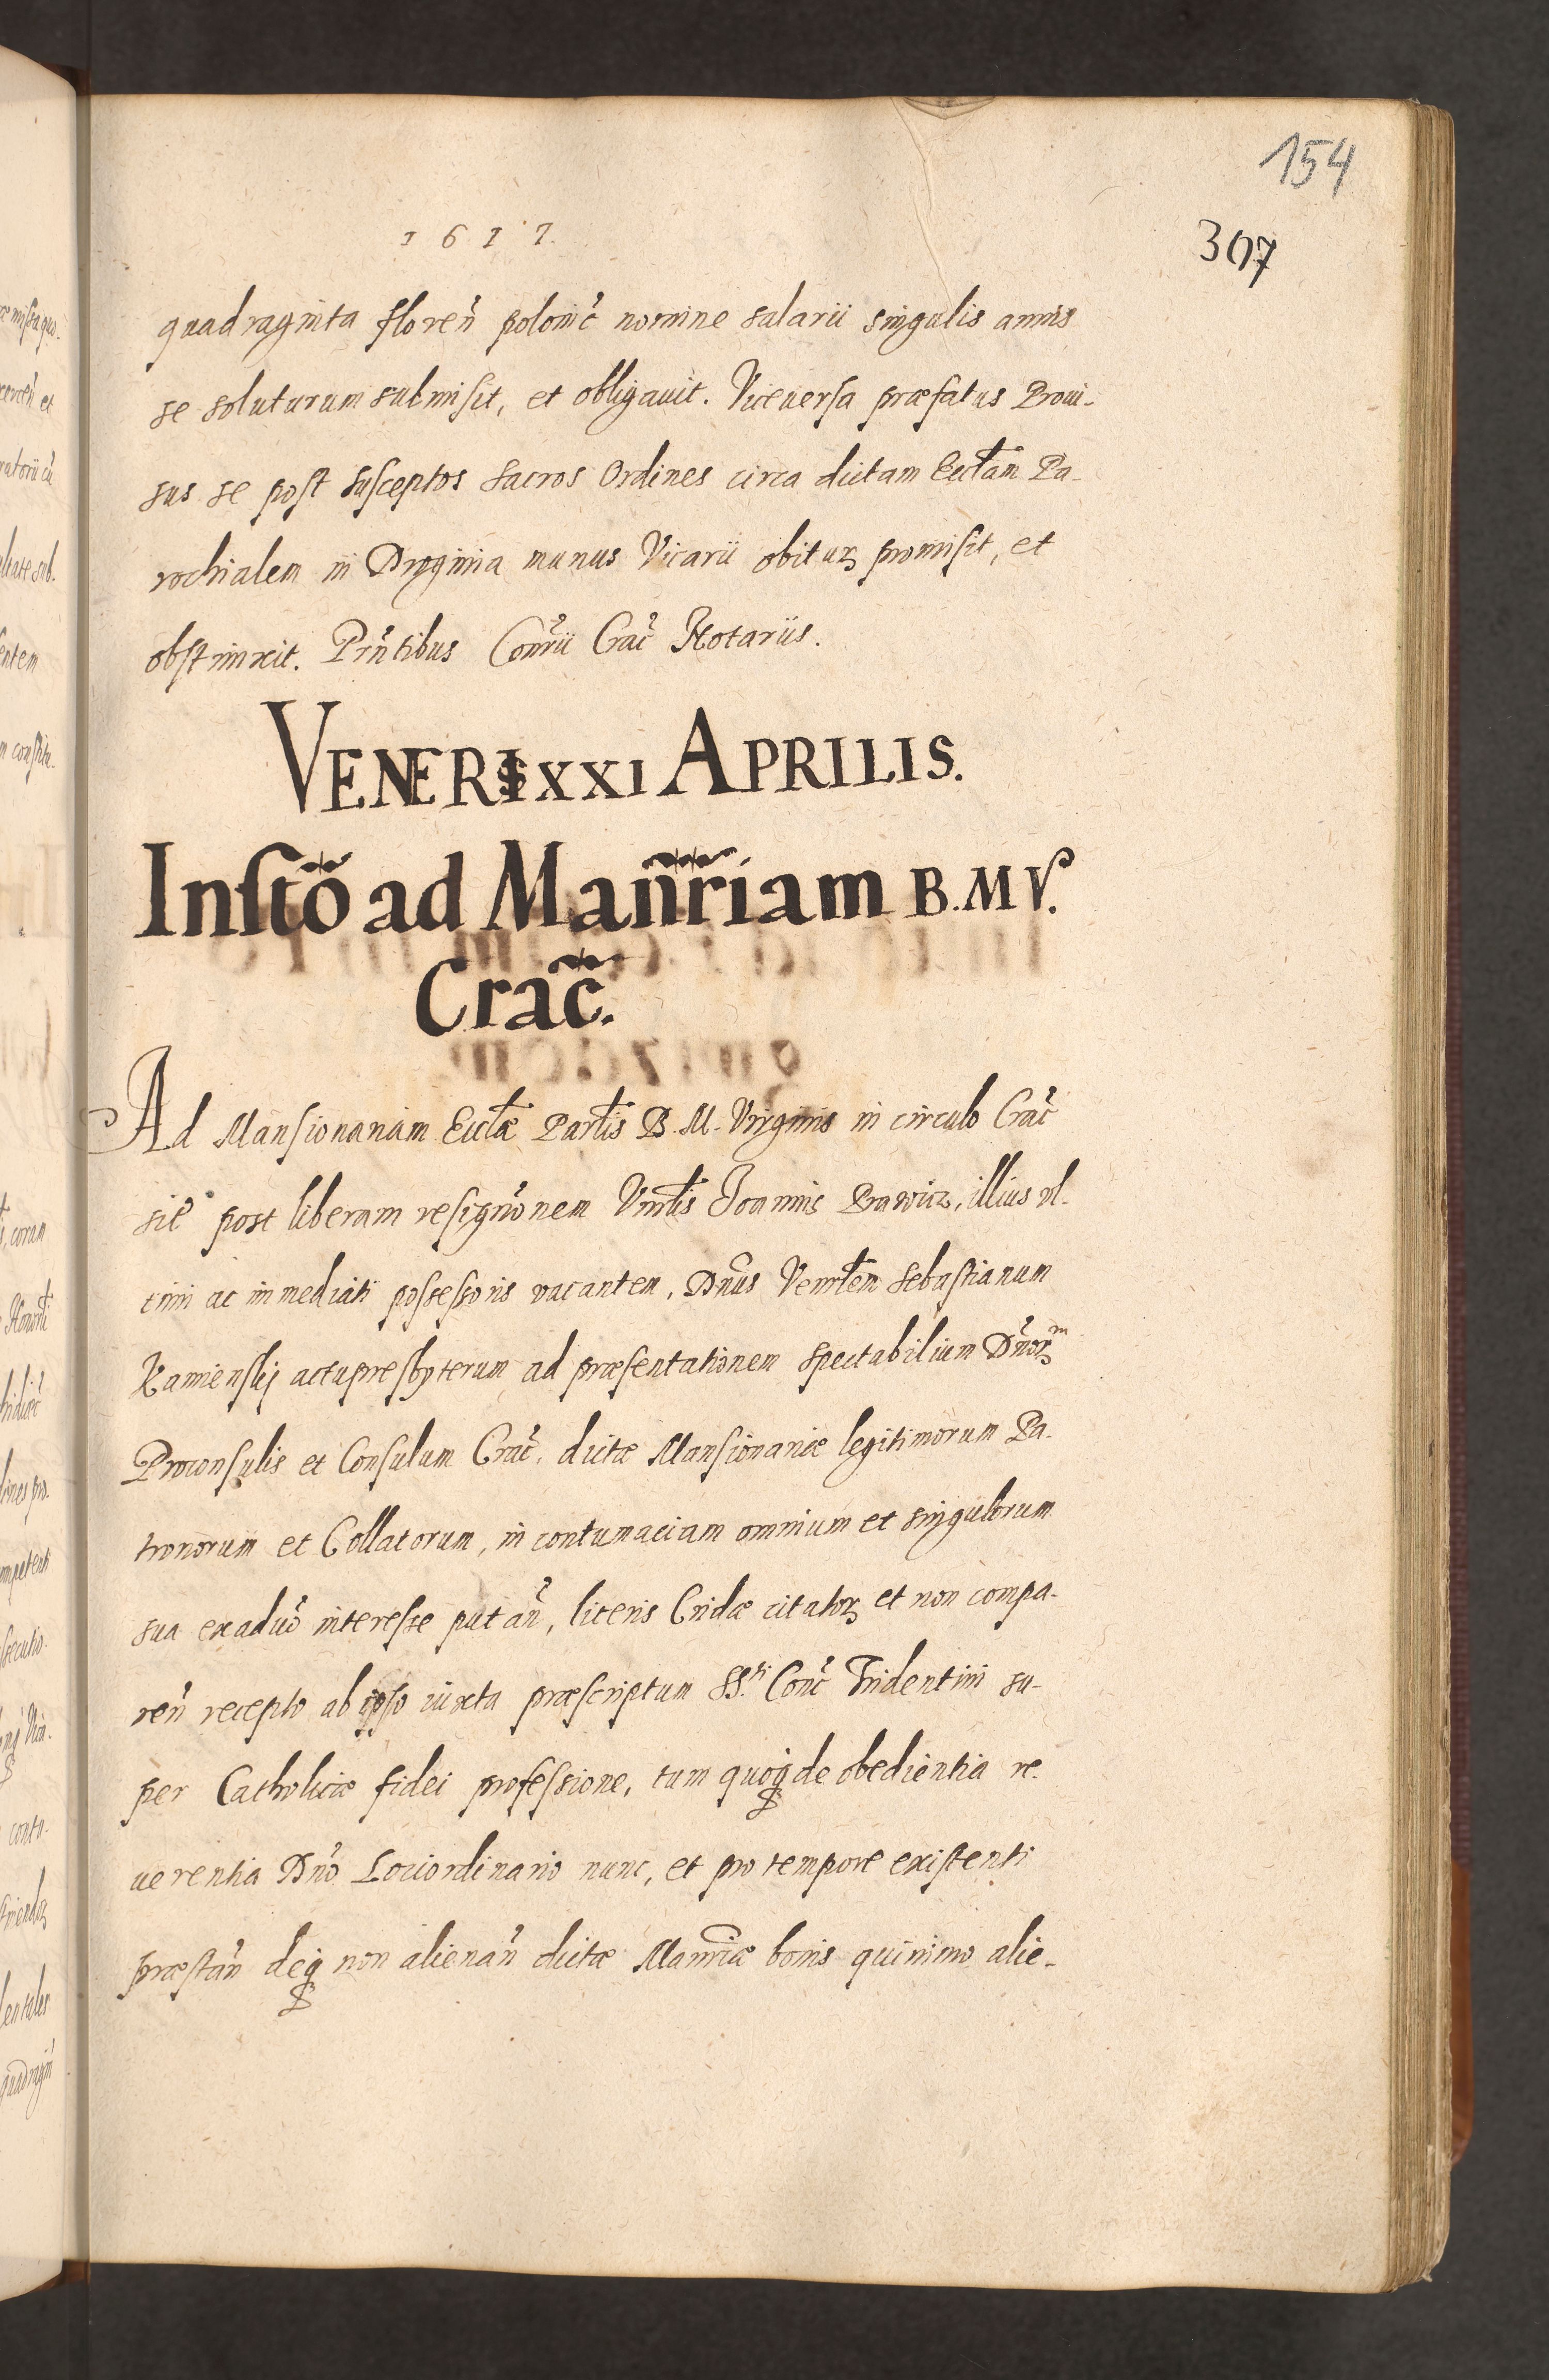 154
1617.
307
quadraginta floreñ polonic̃ nomine salarii singulis annis
se soluturum submisit, et obligauit. Viceuersa præfatus Proui-
sus se post susceptos sacros Ordines circa dictam Eccl̃am Pa-
rochialem in Droginia munus Vicarii obituꝝ promisit, et
obstrinxit. Prñtibus Conr̃ii Crac̃ Notariis.
VENERIS XXI APRILIS.
Instõ ad Mañr̃iam B. M V.
Crac̃.
Ad Mansionariam Eccl̃æ Parl̃is B. M. Virginis in circulo Crac̃
sit̃ post liberam resignõnem Vnrl̃is Joannis Prawicz, illius vl-
timi ac immediati possessoris vacantem, Dñus Venrl̃em Sebastianum
Kamienskj actu presbyterum ad præsentationem Spectabilium Dñorꝝ
Proconsulis et Consulum Crac̃. dictæ Mansionariæ legitimorum Pa-
tronorum et Collatorum, in contumaciam omnium et singulorum
sua ex aduõ interesse putañ, literis Cridæ citatoꝝ et non compa-
reñ recepto ab ipso iuxta præscriptum SS.ti Conc̃ Tridentini su-
per Catholicæ fidei professione, tum quoqꝫ de obedientia re-
uerentia Dñō Lociordinario nunc, et pro tempore existenti
præstañ deqꝫ non alienañ dictæ Manr̃iæ bonis quinimo alie-